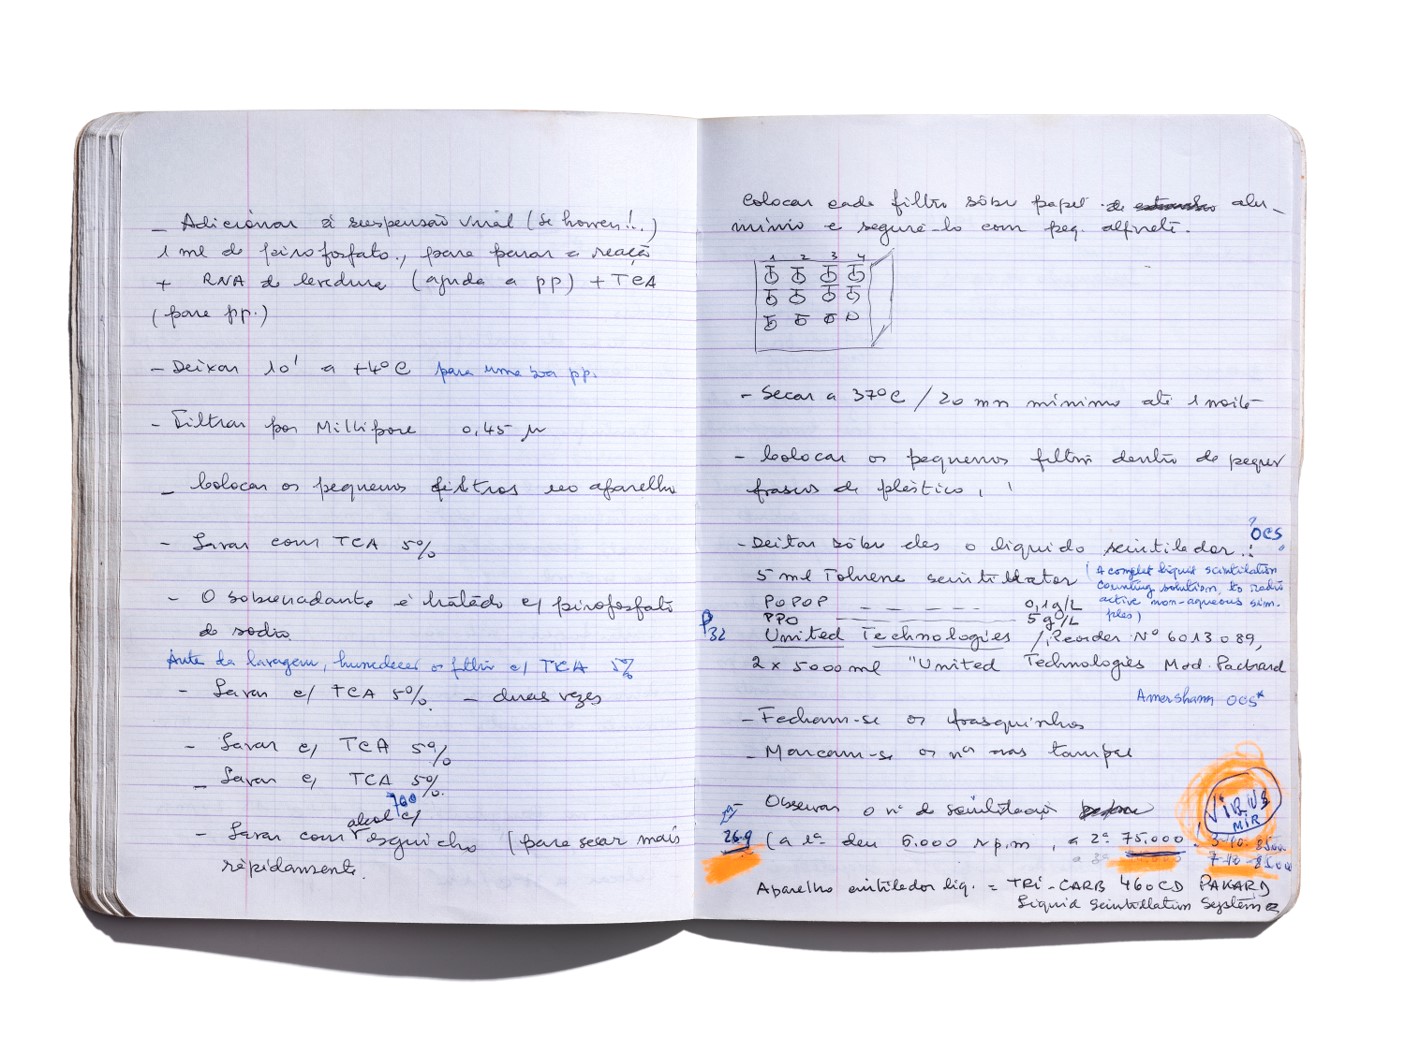 - Adicionar à suspensão viral (se houver!..)
1 ml de pirofosfato., para parar a reação
+ RNA de levedura (ajuda a pp) + TCA
(para pp.)
- Deixar 10' a +4ºC para uma boa pp.
- Filtrar por Millipore 0,45 µ
- Colocar os pequenos filtros no aparelho
- Lavar com TCA 5%
- O sobrenadante é tratado c/ pirofosfato
de sodio.
Antes da lavagem, humedecer o filtro c/ TCA 5%
- Lavar c/ TCA 5%. - duas vezes
- Lavar c/ TCA 5%
- Lavar c/ TCA 5%.
70º
alcool c/
- Lavar com esguicho (para secar mais
rapidamente.
Colocar cada filtro sôbre papel de alu-
mínio e segurá-lo com peq. alfinete.
1 2 3 4
- Secar a 37ºC / 20 mn mínimo até 1 noite
- Colocar os pequenos filtros dentro de pequen
frascos de plástico,
OCS
- Deitar sôbre eles o liquido scintilador.:
5 ml Toluene scintillator (A complet liquid scintilation
counting solution, to radio
active non-aqueous sam-
ples)
POPOP — — — — 0,1 g/L
PPO 5 g/L
P32
United Technologies / Reorder Nº 6013089,
2 x 5000 ml "United Technologies Mod. Packard
Amersham OCS*
- Fecham-se os frasquinhos
- Marcam-se os nºs nas tampas
VIRUS
MIR
- Observar o nº de scintilações
26.9 (a 1ª deu 6.000 r.p.m, a 2ª 75.000!
Aparelho cintilador liq. = TRI-CARB 460CD PAKARD
Liquid Scintillation System